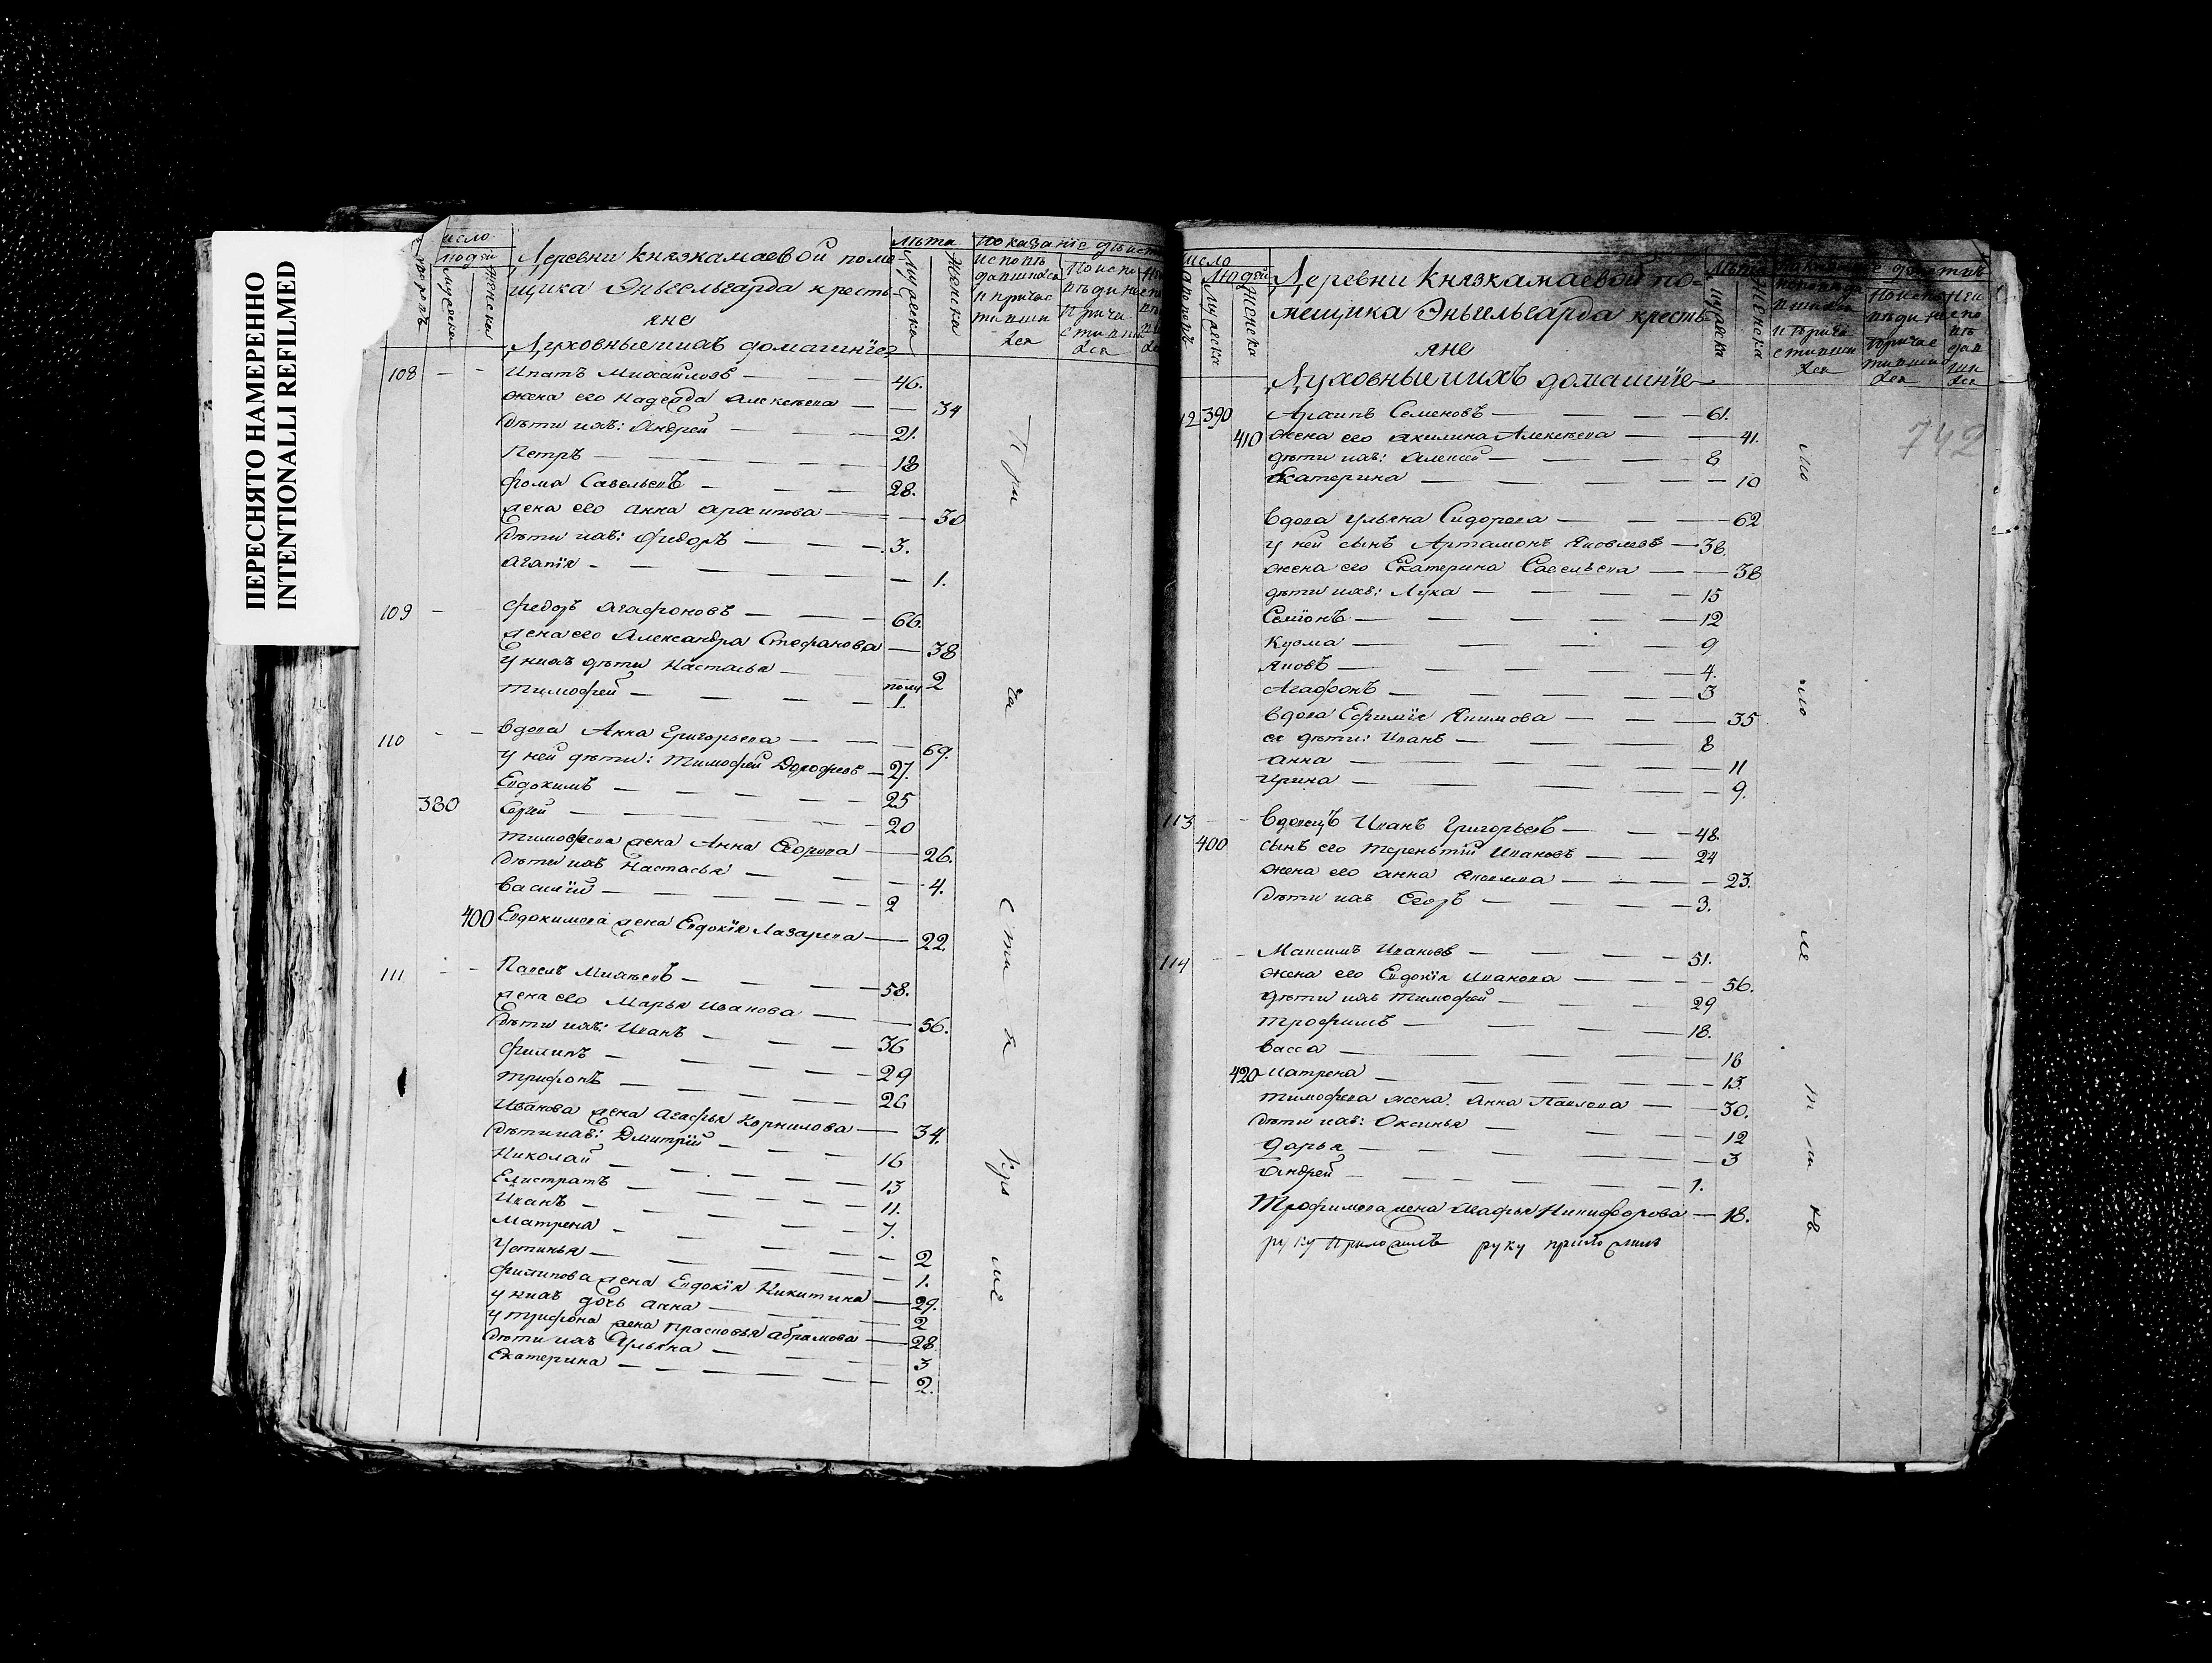 ПЕРЕСНЯТО НАМЕРЕННО
INTENTIONALLI REFILMED
число людей
мужеска
женска
Деревни Князкамаевой поме
щика Эньгельгарда кресть
яне
Духовныеиихъ домашнїе
лѣта
Мужеска
Женска
показанїе дѣйст
исповѣ
давшихся
и причас
тивши
ся
108 Ипатъ Михайловъ — 46.
жена его Надежда Алексѣева — 34
дѣти ихъ: Андрей — 21.
Петръ — 18
Фома Савельевъ — 28.
жена его Анна Архипова — 30
дѣти ихъ: Федоръ — 3.
Агапїя — 1.
109 Федоръ Агафоновъ — 66.
жена его Александра Стефанова — 38
у нихъ дѣти Настасья — 2
Тимофей — полу 1.
110 вдова Анна Григорьева — 69.
у ней дѣти: Тимофей Дорофеевъ — 27.
Евдокимъ — 25
380 Сергей — 20
Тимофеева жена Анна Федорова — 26.
дѣти ихъ Настасья — 4.
Василїй — 2
400 Евдокимова жена Евдокїя Лазарева — 22.
111 Павелъ Михѣевъ — 58.
жена его Марья Иванова — 56.
дѣти ихъ: Иванъ — 36
Филипъ — 29
Трифонъ — 26
Иванова жена Агафья Корнилова — 34.
дѣти ихъ: Дмитрїй — 16
Николай — 13
Елистратъ — 11.
Иванъ — 7.
Матрена — 2
Устинья — 1.
Филипова жена Евдокїя Никитина — 29.
у нихъ дочь Анна — 2
у Трифона жена Прасковья Абрамова — 28
дѣти ихъ Ульяна — 3
Екатерина — 2.
число
Людей
мужеска
Женска
Деревни Князкамаевой по=
мещика Эньгельгарда кресть
яне
Духовныеиихъ домашнїе
742
12 390 Архипъ Семеновъ — 61.
410 жена его Акилина Алексѣева — 41.
дѣти ихъ: Алексей — 8
Екатерина — 10
вдова Ульяна Сидорова — 62
у ней сынъ Артамонъ Яковлевъ — 38.
жена его Екатерина Савельева — 38
дѣти ихъ: Лука — 15
Семїонъ — 12
Кузма — 9
Яковъ — 4.
Агафонъ — 3
вдова Ефимїя Якимова — 35
ея дѣти: Иванъ — 8
Анна — 11
Ирина — 9.
113 вдовецъ Иванъ Григорьевъ — 48.
400 сынъ его Терентїй Ивановъ — 24
жена его Анна Яковлева — 23.
дѣти ихъ Егоръ — 3.
114 Максимъ Ивановъ — 51.
жена его Евдокїя Иванова — 56.
дѣти ихъ Тимофей — 29
Трофимъ — 18.
Васса — 16
420 Матрена — 13.
Тимофеева жена Анна Павлова — 30.
дѣти ихъ: Оксинья — 12
Дарья — 3
Андрей — 1.
Трофимова жена Агафья Никифорова — 18.
руку приложилъ руку приложилъ